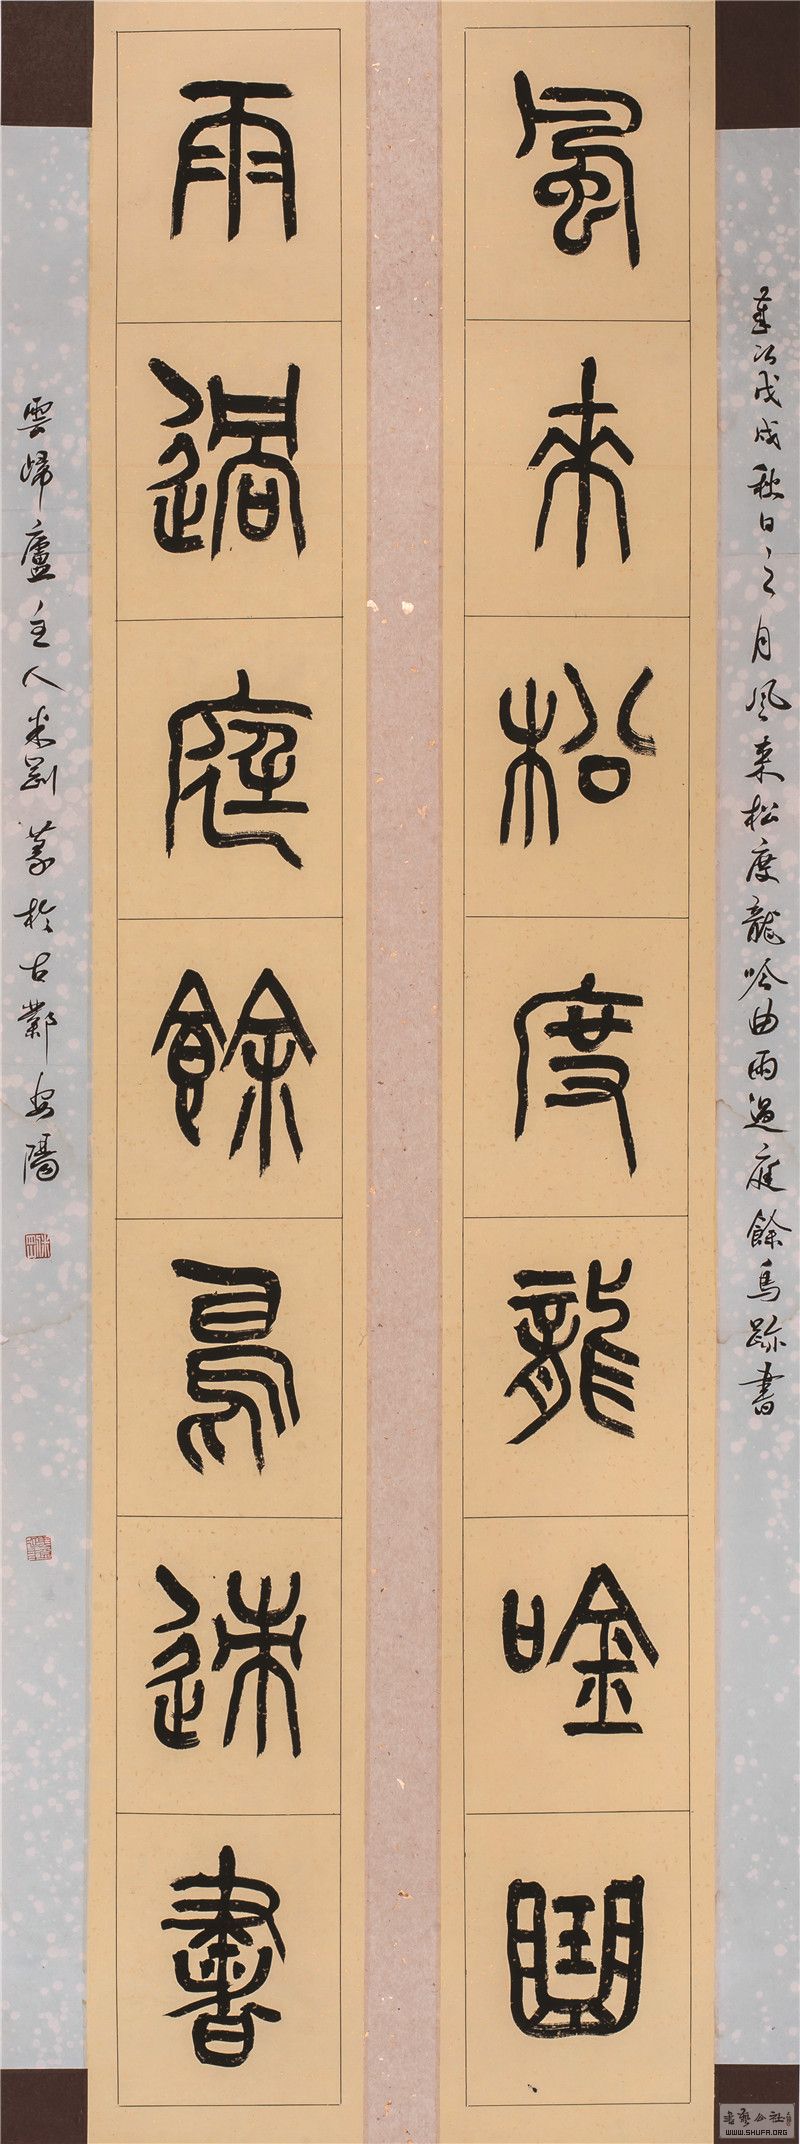 風來松度龍吟曲
雨過庭餘鳥迹書
歲次戊戌秋日之月風来松度龍吟曲雨過庭餘鳥跡書
雲歸廬主人剛篆於古鄴安陽
書藝公社
WWW.SHUFA.ORG